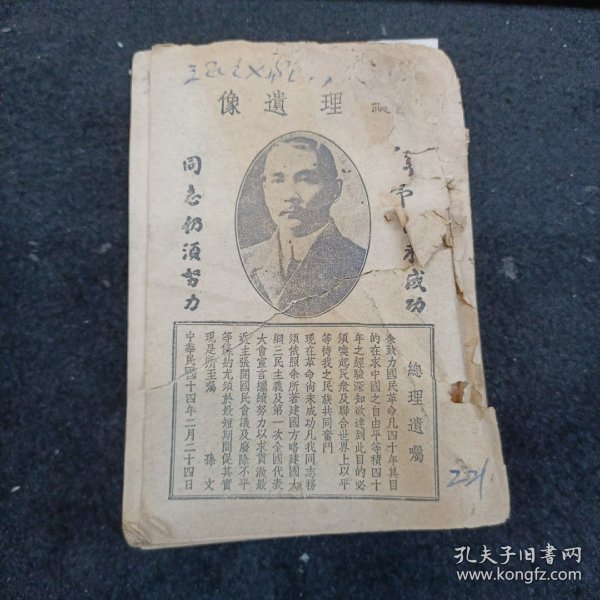 像遺理
成功
同志仍須努力
總理遺囑
余致力國民革命凡四十年其目
的在求中國之自由平等積四十
年之經驗深知欲達到此目的必
須喚起民衆及聯合世界上以平
等待我之民族共同奮鬥
現在革命尚未成功凡我同志務
須依照余所著建國方略建國大
綱三民主義及第一次全國代表
大會宣言繼續努力以求貫澈最
近主張開國民會議及廢除不平
等條約尤須於最短期間促其實
現是所至囑
孫文
中華民國十四年二月二十四日
221
孔夫子旧書网
www.kongfz.com